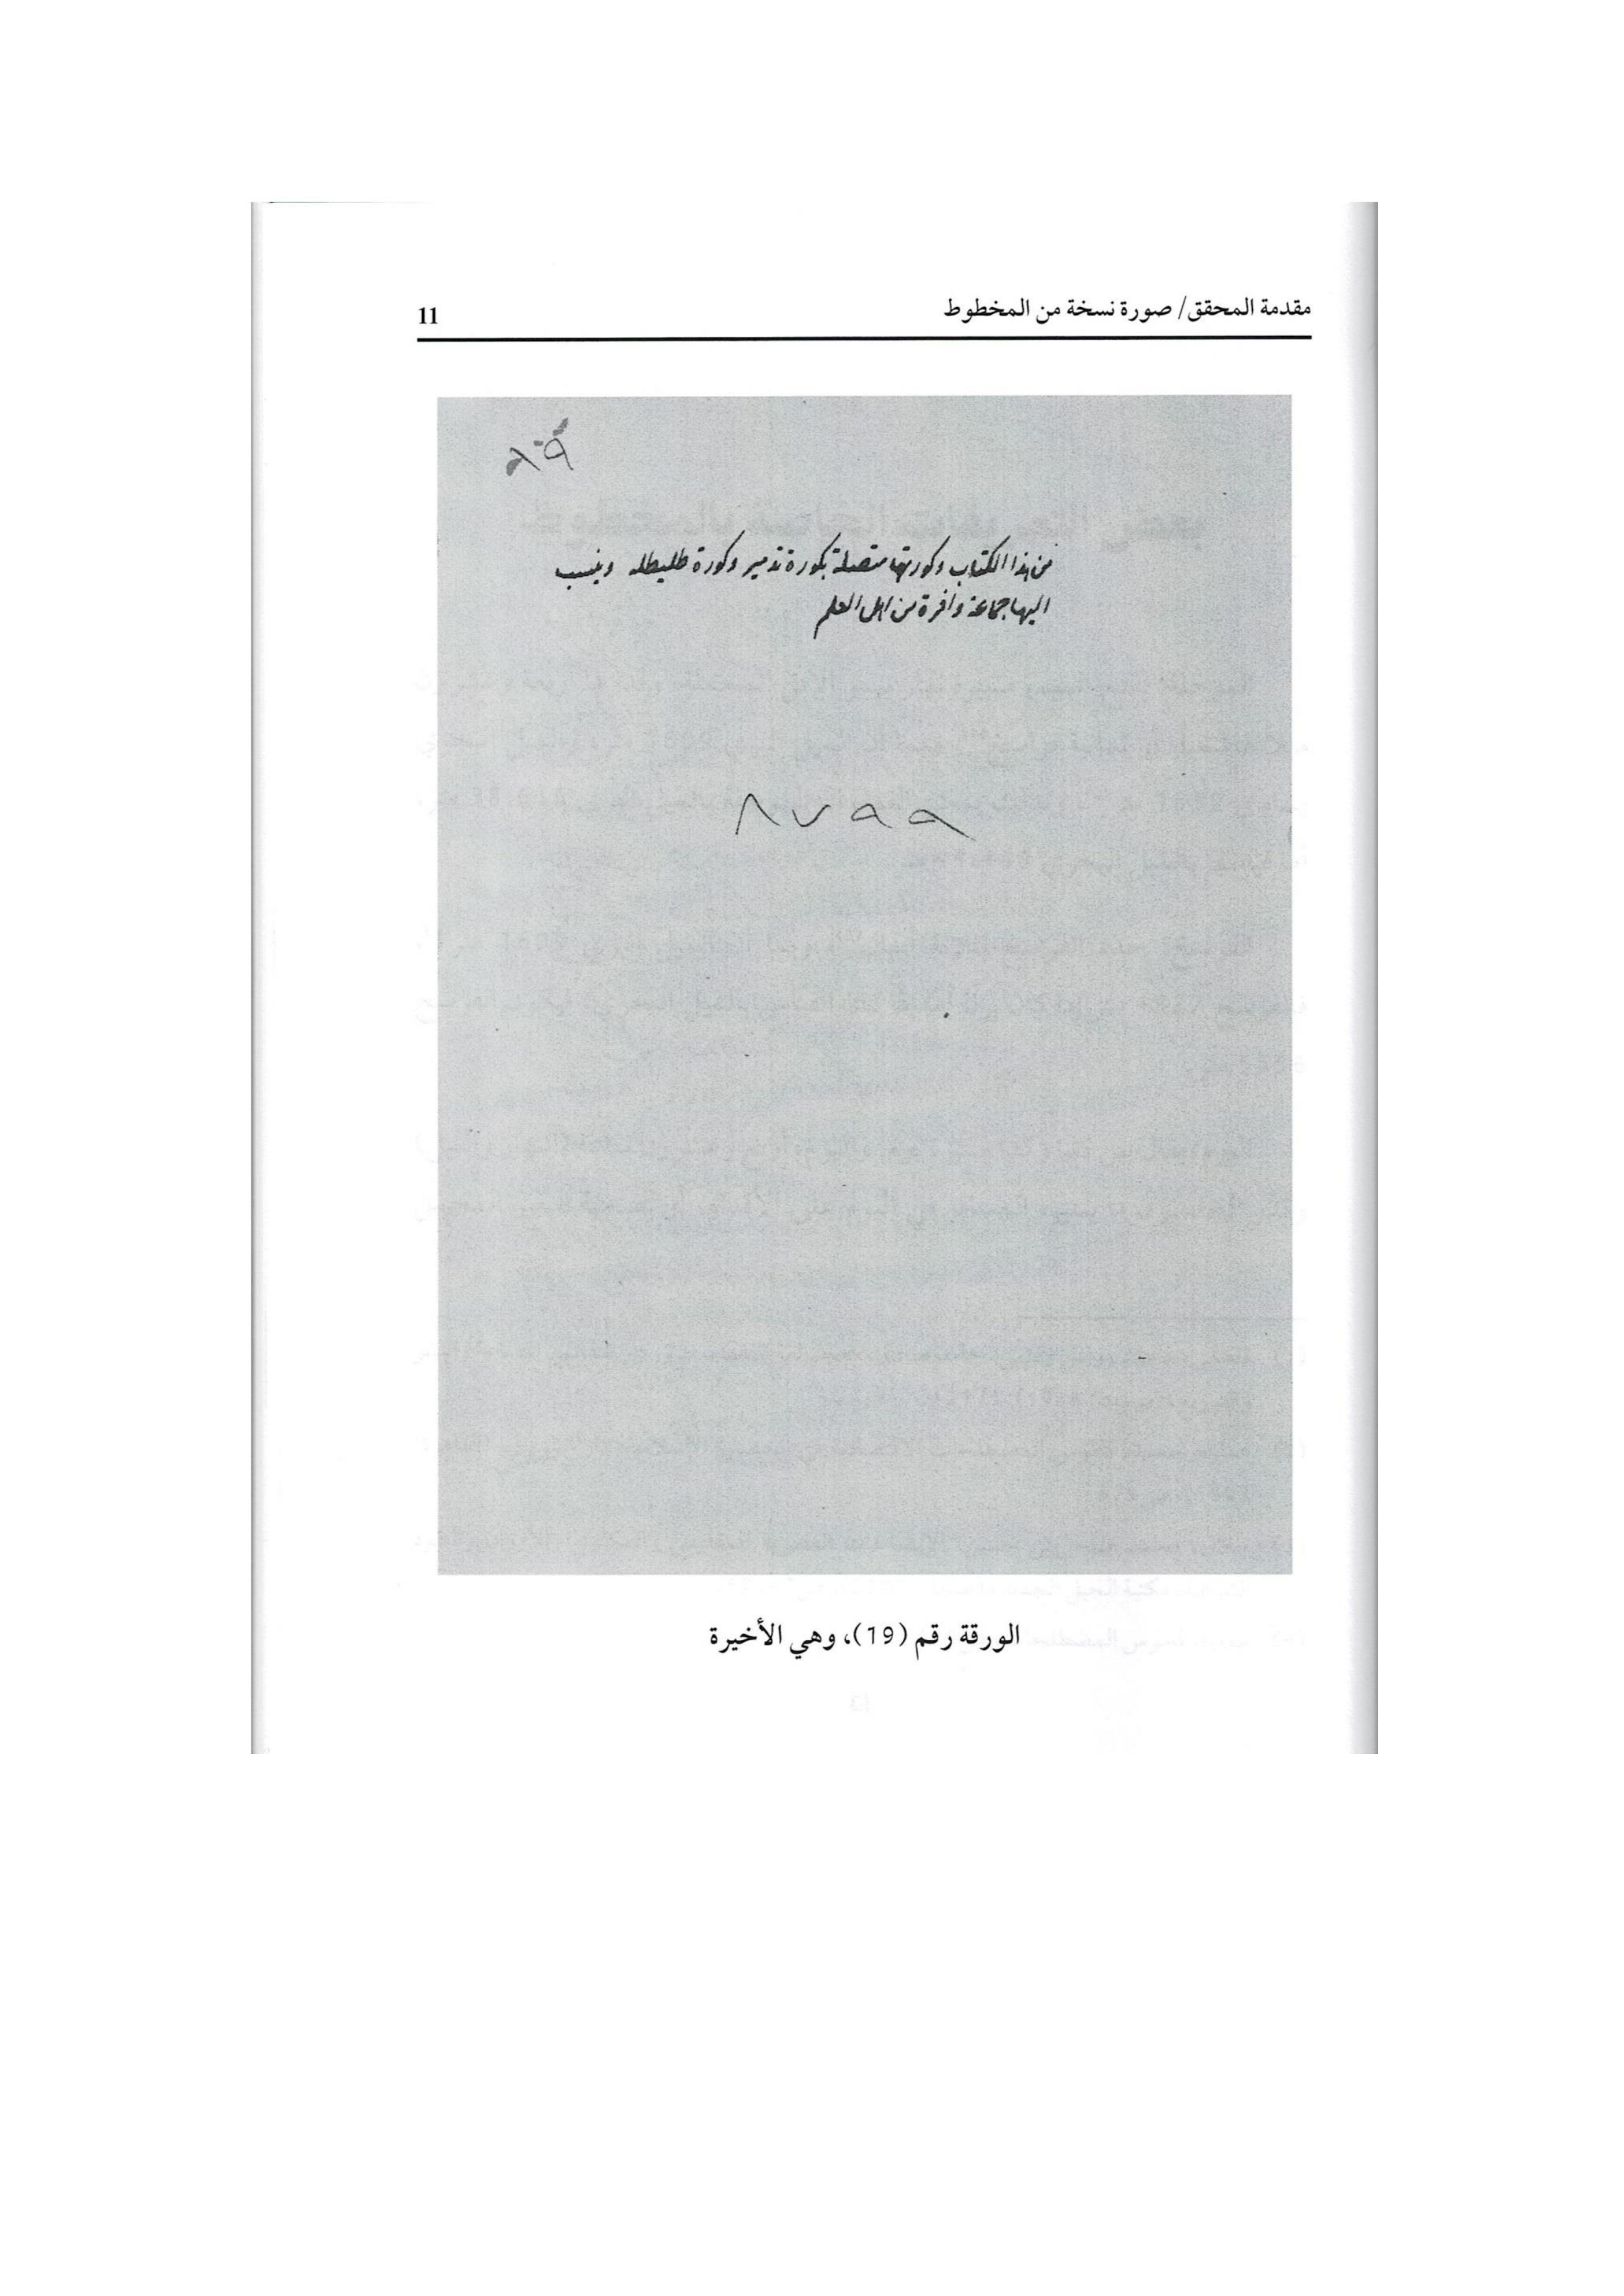 مقدمة المحقق/ صورة نسخة من المخطوط
11
من هذا الكتاب وكورتها متصلة بكورة تدمير وكورة طليطله وينسب
اليها جماعة وافرة من اهل العلم
٨٧٩٩
الورقة رقم (19)، وهي الأخيرة